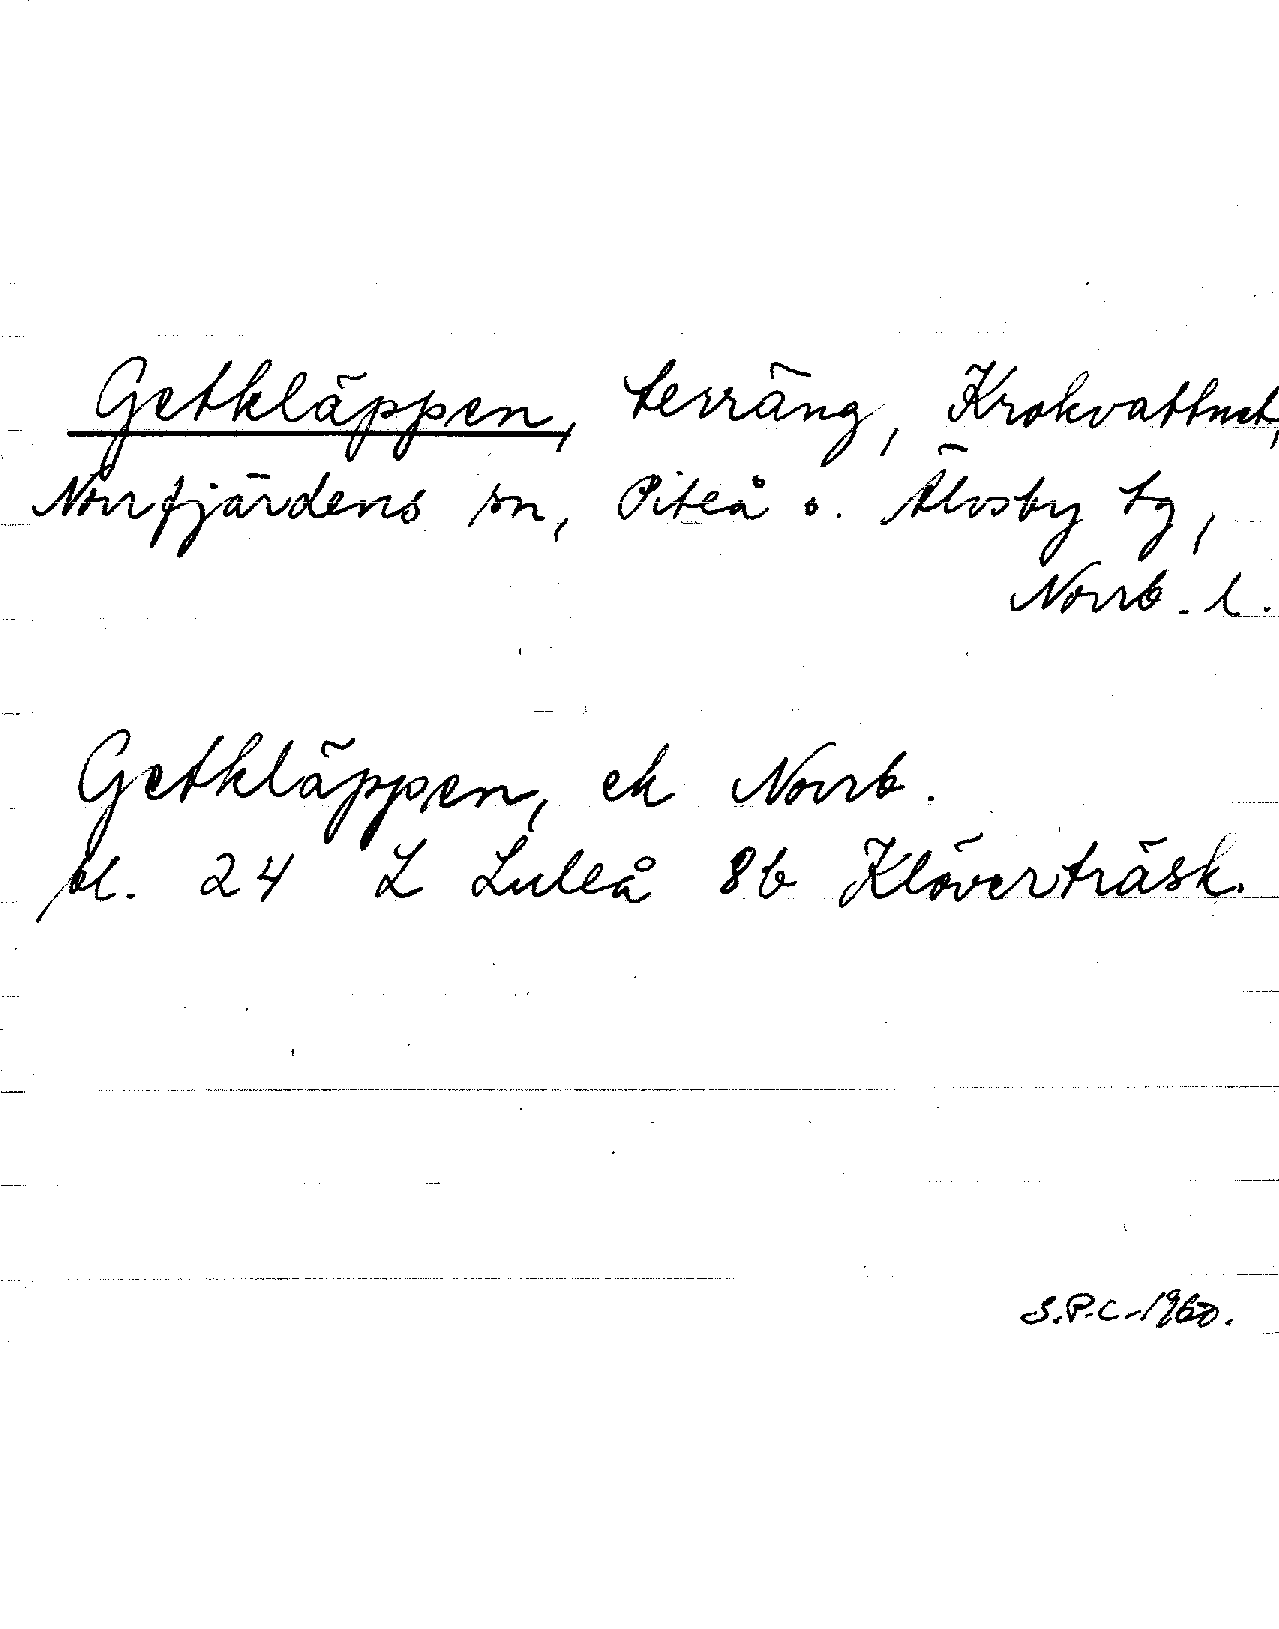 Getkläppen, terräng, Krokvattnet,
Norrfjärdens sn, Piteå o. Älvsby tg,
Norrb. l.
Getkläppen, ek Norrb.
bl. 24 L Luleå 8b Klöverträsk.
S.P.C-1960.